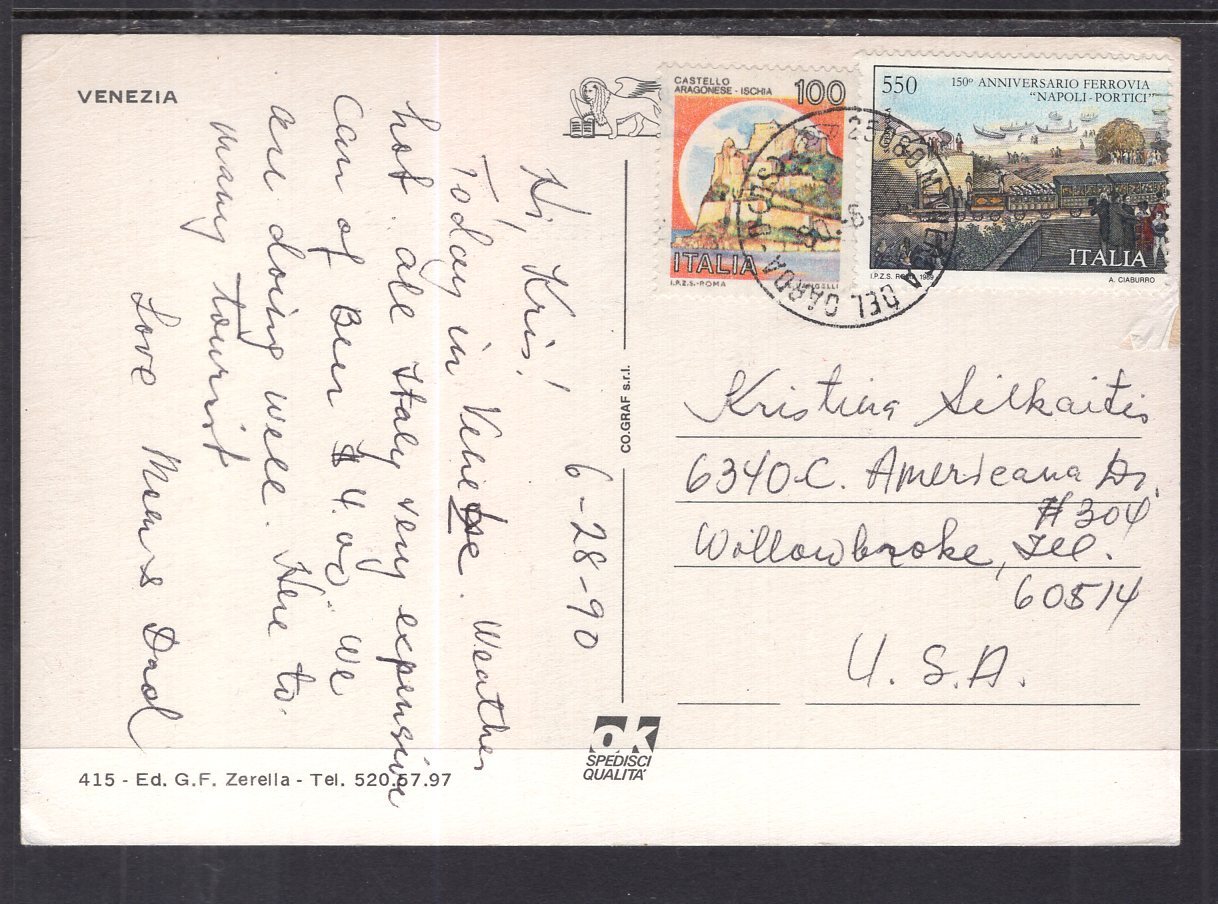 VENEZIA
6-28-90
Hi, Kris!
Today in Venice. Weather
hot. All Italy very expensive
Can of Beer $ 4.00 We
are doing well. Here to-
many tourist
Love Mom & Dad
415 - Ed. G.F. Zerella - Tel. 520.67.97
CO.GRAF s.r.l.
ok
SPEDISCI
QUALITA'
CASTELLO
ARAGONESE - ISCHIA
100
ITALIA
I.P.Z.S.-ROMA
550
150º ANNIVERSARIO FERROVIA
"NAPOLI-PORTICI"
ITALIA
I.P.Z.S. ROMA 1989
A. CIABURRO
25080 M
A DEL GARDA
Kristina Silkaitis
6340-C. Americana Dr.
#304
Willowbroke, Ill.
60514
U.S.A.